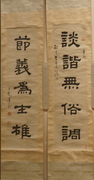 談諧無俗調
節義為士雄